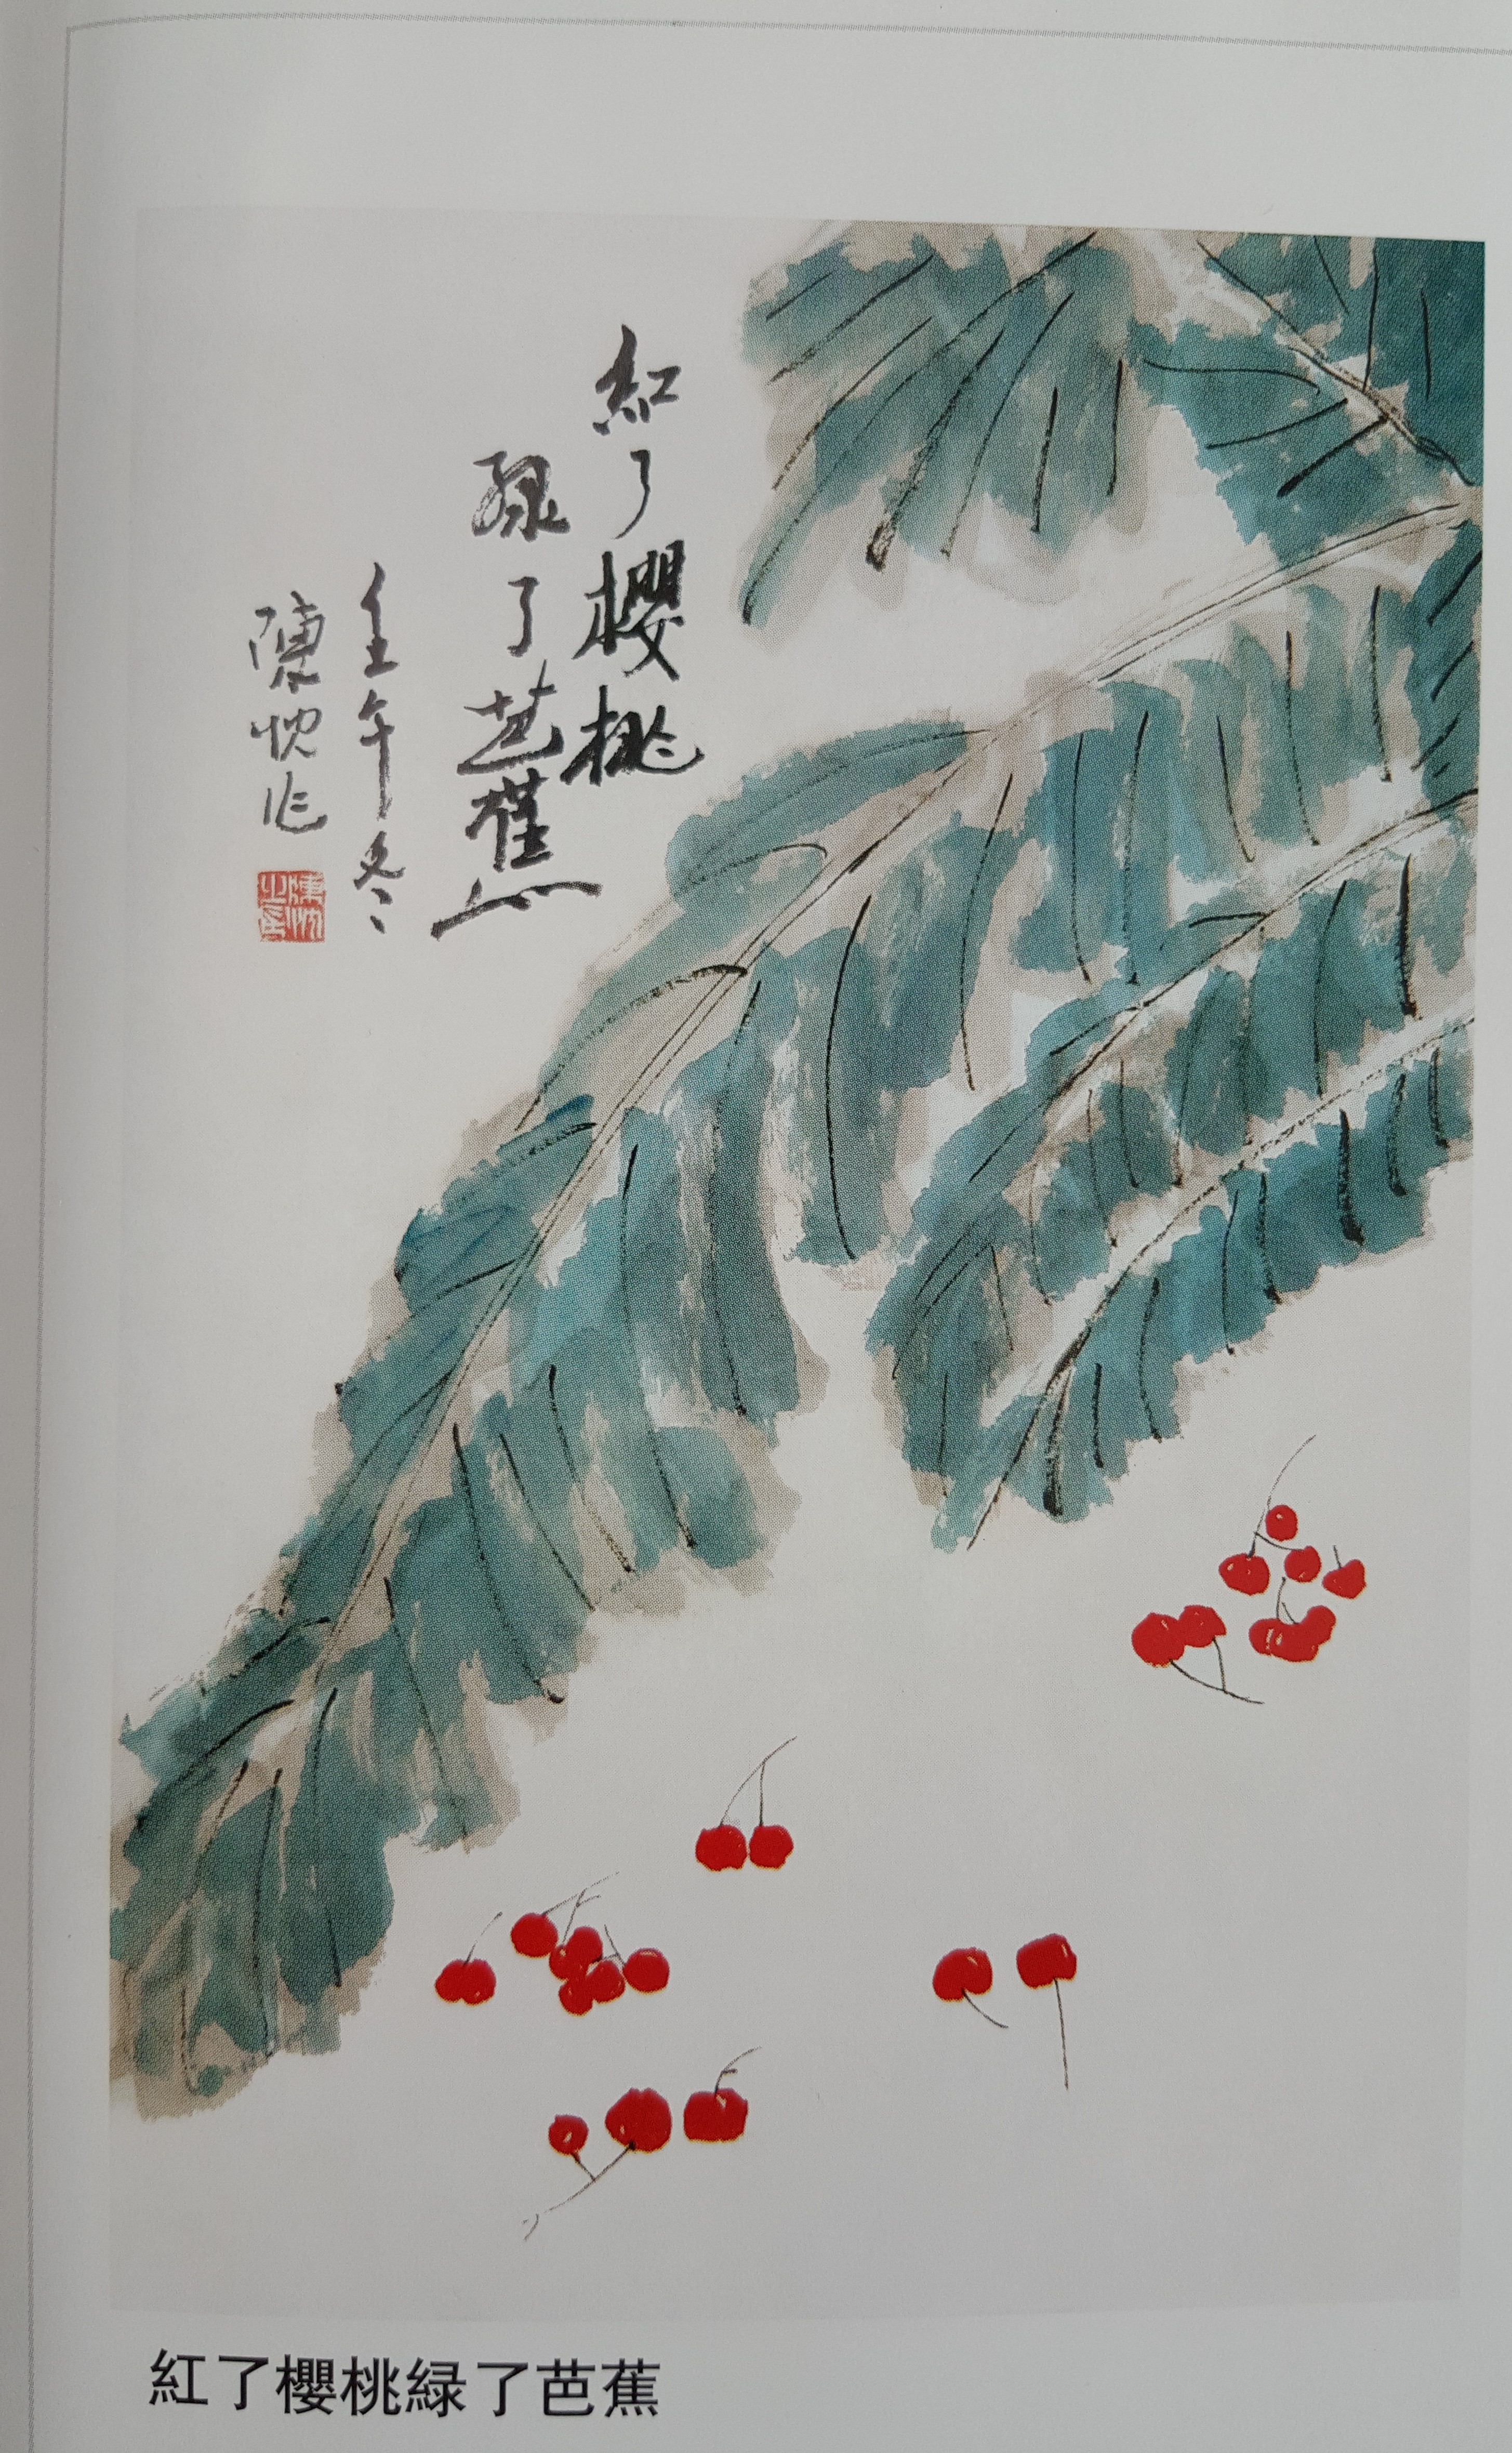 紅了櫻桃
緑了芭蕉
壬午冬
陳忱作
紅了櫻桃緑了芭蕉